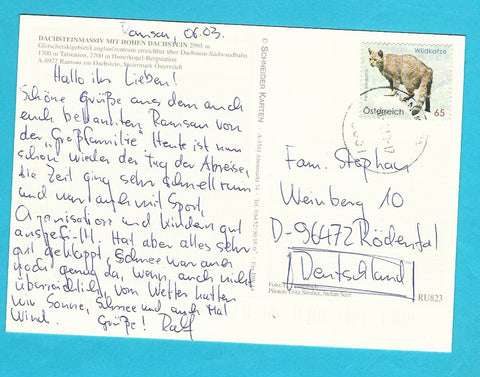 Ramsau, 06.03.
DACHSTEINMASSIV MIT HOHEN DACHSTEIN 2995 m
Gletscherskigebiet/Langlaufzentrum erreichbar über Dachstein-Südwandbahn
1700 m Talstation, 2700 m Hunerkogel-Bergstation
A-8972 Ramsau am Dachstein, Steiermark Österreich
Hallo ihr Lieben!
Schöne Grüße aus dem auch
euch bekannten Ramsau von
der "Großfamilie". Heute ist nun
schon wieder der Tag der Abreise,
die Zeit ging sehr schnell rum
und war auch mit Sport,
Organisation und Kindern gut
ausgefüllt. Hat aber alles sehr
gut geklappt, Schnee war auch
noch genug da, wenn auch nicht
übermäßig, vom Wetter hatten
wir Sonne, Schnee und auch mal
Wind. Grüße! Ralf
© SCHNEIDER KARTEN
Wildkatze
Österreich
65
Fam. Stephan
Weinberg 10
D-96472 Rödental
Deutschland
RU823